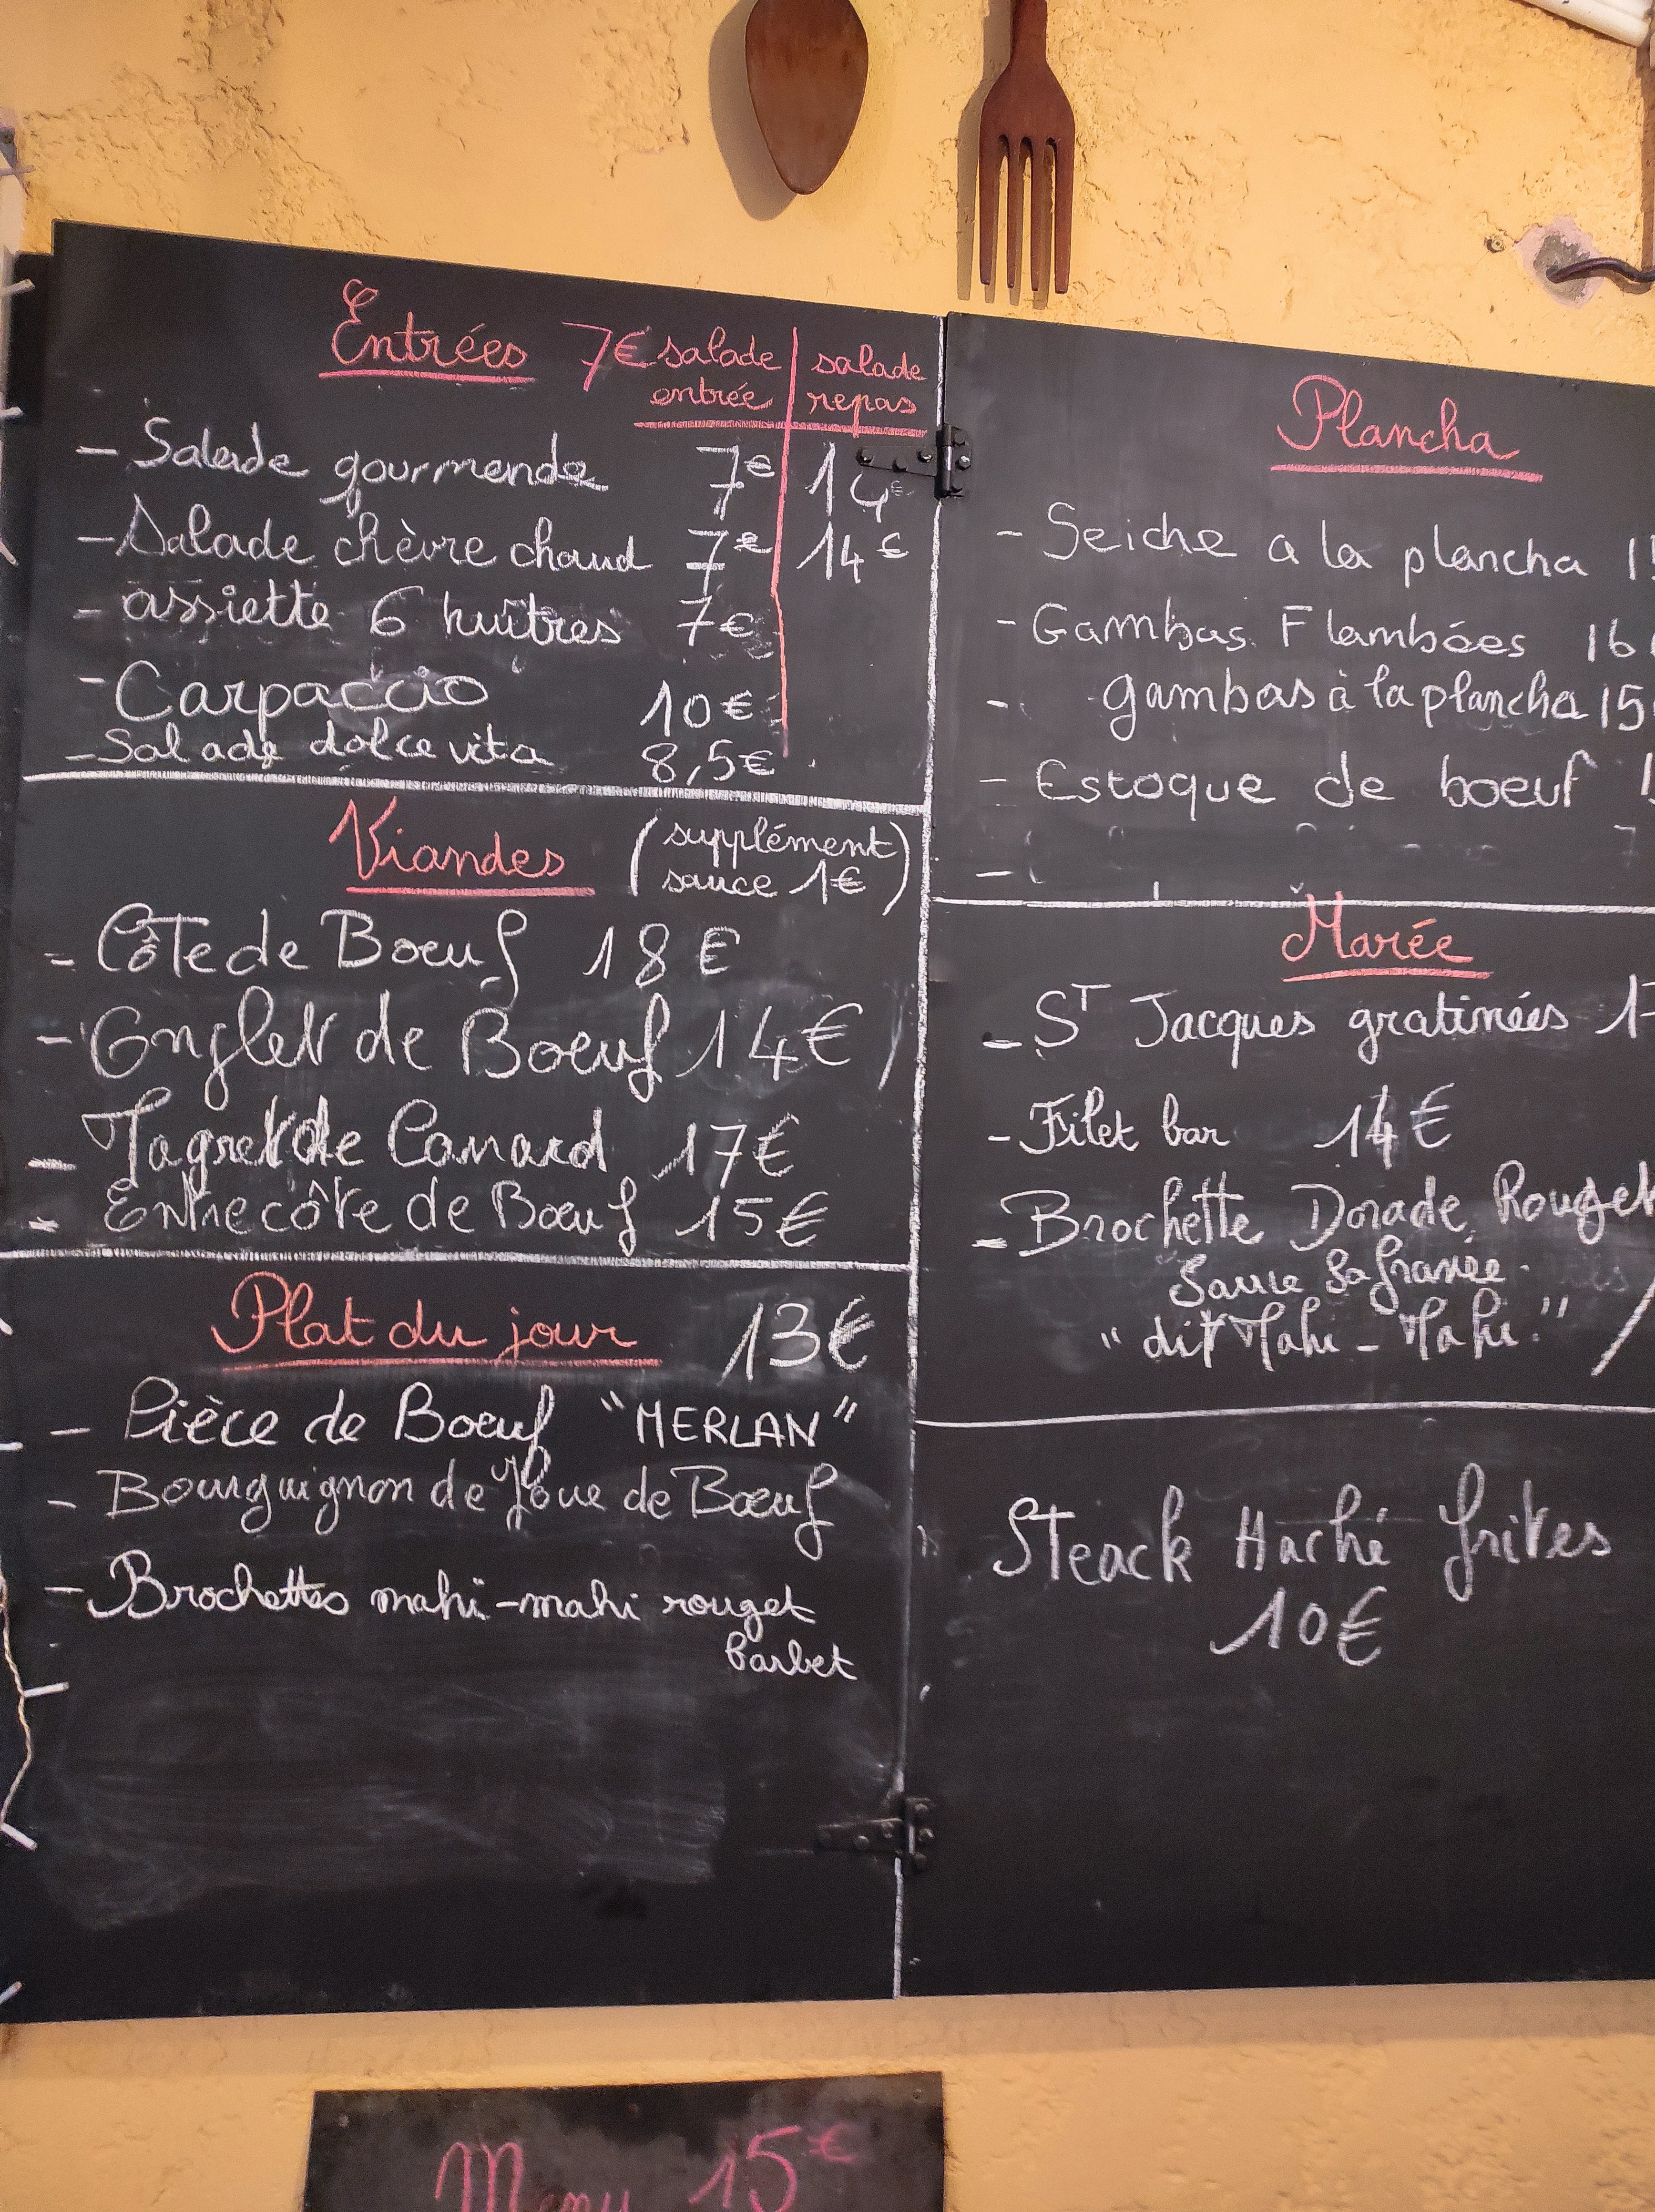 Entrées 7€ salade entrée | salade repas
- Salade gourmande 7€ 14€
- Salade chèvre chaud 7€ 14€
- assiette 6 huîtres 7€
- Carpaccio 10€
- Salade dolce vita 8,5€
Viandes (supplément
sauce 1€)
- Côte de Boeuf 18€
- Onglet de Boeuf 14€
- Magret de Canard 17€
- Entrecôte de Boeuf 15€
Plat du jour 13€
- Pièce de Boeuf "MERLAN"
- Bourguignon de Joue de Boeuf
- Brochettes mahi-mahi rouget
barbet
Plancha
- Seiche a la plancha
- Gambas Flambées 16
- gambas à la plancha 15
- Estoque de boeuf
Marée
- ST Jacques gratinées
- Filet bar 14€
- Brochette Dorade Rouget
Sauce Safranée
"dit Mahi-Mahi"
Steack Haché frites
10€
Menu 15€